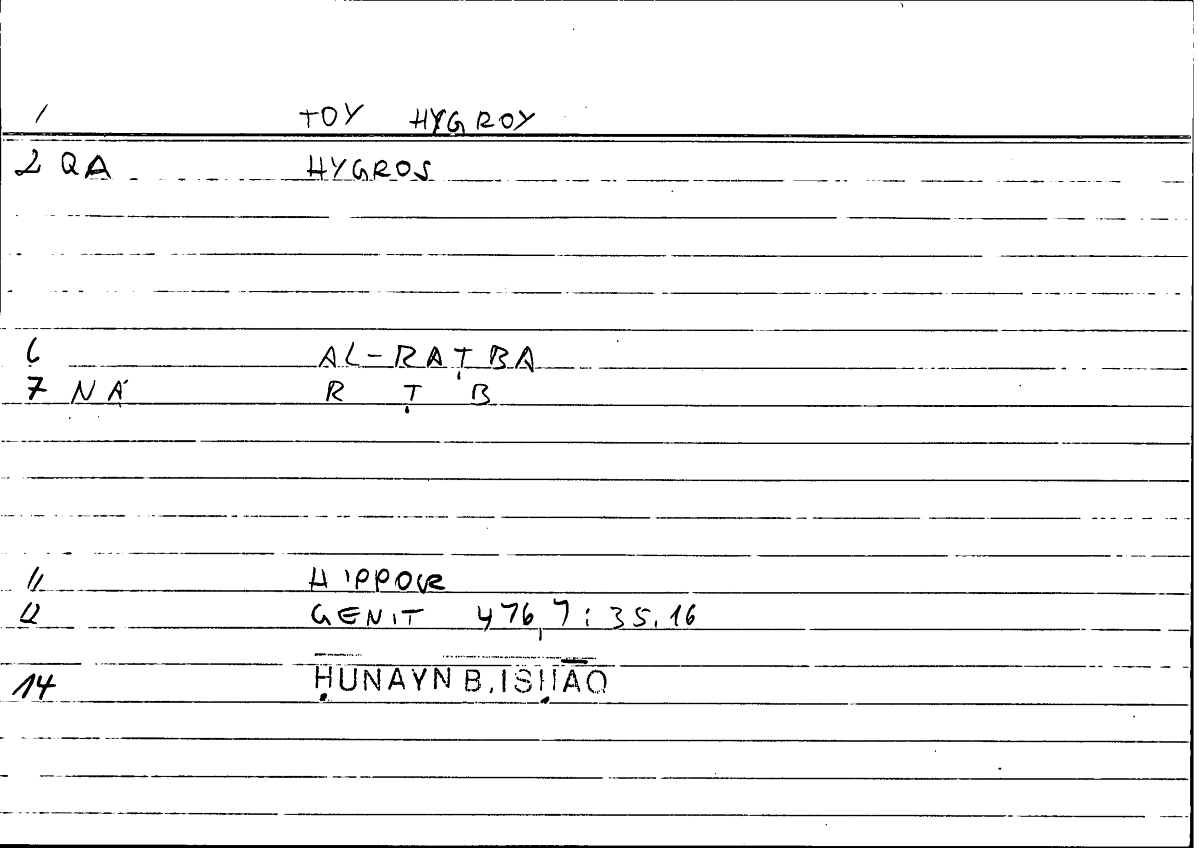 1 TOY HYGROY
2 QA HYGROS
6 AL-RAṬBA
7 NA R Ṭ B
11 HIPPOCR
12 GENIT 476,7:35.16
14 ḤUNAYN B.ISḤĀQ